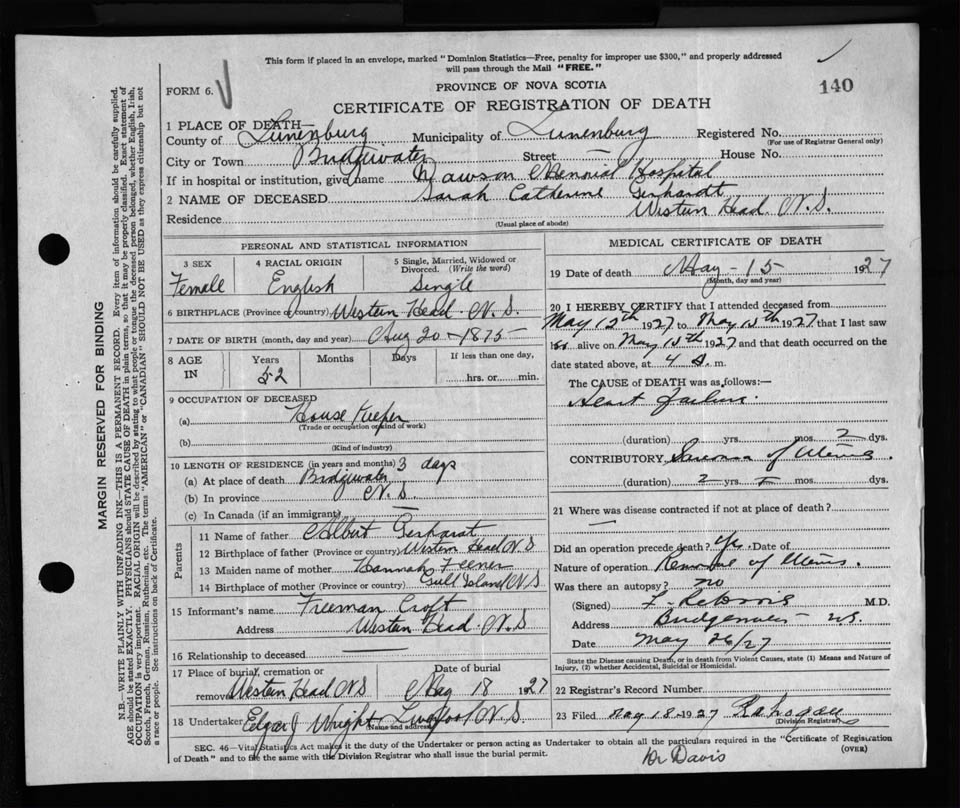 This form if placed in an envelope, marked "Dominion Statistics—Free, penalty for improper use $300," and properly addressed
will pass through the Mail "FREE."
FORM 6.
PROVINCE OF NOVA SCOTIA
140
CERTIFICATE OF REGISTRATION OF DEATH
1 PLACE OF DEATH—
County of Lunenburg Municipality of Lunenburg Registered No.
(For use of Registrar General only)
City or Town Bridgewater Street — House No.
If in hospital or institution, give name Dawson Memorial Hospital
2 NAME OF DECEASED Sarah Catherine Gerhardt
Residence Western Head N.S.
(Usual place of abode)
PERSONAL AND STATISTICAL INFORMATION
3 SEX
Female
4 RACIAL ORIGIN
English
5 Single, Married, Widowed or
Divorced. (Write the word)
Single
6 BIRTHPLACE (Province or country) Western Head N.S.
7 DATE OF BIRTH (month, day and year) Aug 20 - 1875
8 AGE
IN
Years
52
Months
Days
If less than one day,
hrs. or min.
9 OCCUPATION OF DECEASED
(a) House Keeper
(Trade or occupation or kind of work)
(b)
(Kind of industry)
10 LENGTH OF RESIDENCE (in years and months) 3 days
(a) At place of death Bridgewater
(b) In province N.S.
(c) In Canada (if an immigrant) —
Parents
11 Name of father Albert Gerhardt
12 Birthplace of father (Province or country) Western Head N S
13 Maiden name of mother Hannah Feener
14 Birthplace of mother (Province or country) Gull Island N S
15 Informant's name Freeman Croft
Address Western Head. N.S
16 Relationship to deceased
17 Place of burial, cremation or
removal Western Head NS
Date of burial
May 18 1927
18 Undertaker Edgar J Wright Liverpool N.S.
(Name and address)
MEDICAL CERTIFICATE OF DEATH
19 Date of death May - 15 1927
(Month, day and year)
20 I HEREBY CERTIFY that I attended deceased from
May 13th 1927 to May 15th 1927 that I last saw
alive on May 15th 1927 and that death occurred on
the date stated above, at 4 a. m.
The CAUSE of DEATH was as follows:—
Heart failure.
(duration) yrs. mos. 2 dys.
CONTRIBUTORY of Uterus.
(duration) 2 yrs. mos. dys.
21 Where was disease contracted if not at place of death?
Did an operation precede death? Yes Date of
Nature of operation Removal of Uterus.
Was there an autopsy? no
(Signed) M.D.
Address Bridgewater NS.
Date May 26/27
State the Disease causing Death, or in death from Violent Causes, state (1) Means and Nature of
Injury, (2) whether Accidental, Suicidal or Homicidal.
22 Registrar's Record Number
23 Filed May 18 1927
(Division Registrar)
SEC. 46—Vital Statistics Act makes it the duty of the Undertaker or person acting as Undertaker to obtain all the particulars required in the "Certificate of Registration
of Death" and to file the same with the Division Registrar who shall issue the burial permit.
(OVER)
Dr Davis
MARGIN RESERVED FOR BINDING
N.B.—WRITE PLAINLY WITH UNFADING INK—THIS IS A PERMANENT RECORD. Every item of information should be carefully supplied.
AGE should be stated EXACTLY. PHYSICIANS should STATE CAUSE OF DEATH in plain terms, so that it may be properly classified. Exact statement of
OCCUPATION is very important. RACIAL ORIGIN will be described by stating to what people or tongue the deceased person belonged, whether English, Irish,
Scotch, French, German, Russian, Ruthenian, etc. The terms "AMERICAN" or "CANADIAN" SHOULD NOT BE USED as they express citizenship but not
a race or people. See instructions on back of Certificate.